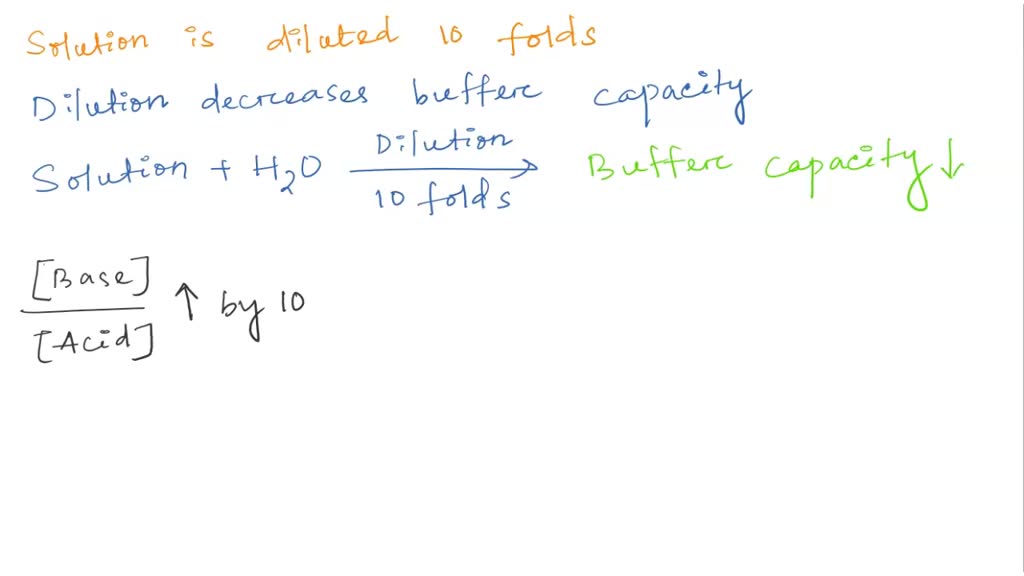 Solution is diluted 10 folds
Dilution decreases buffer capacity
Solution + H2O Dilution 10 folds → Buffer capacity ↓
[Base]
[Acid] ↑ by 10